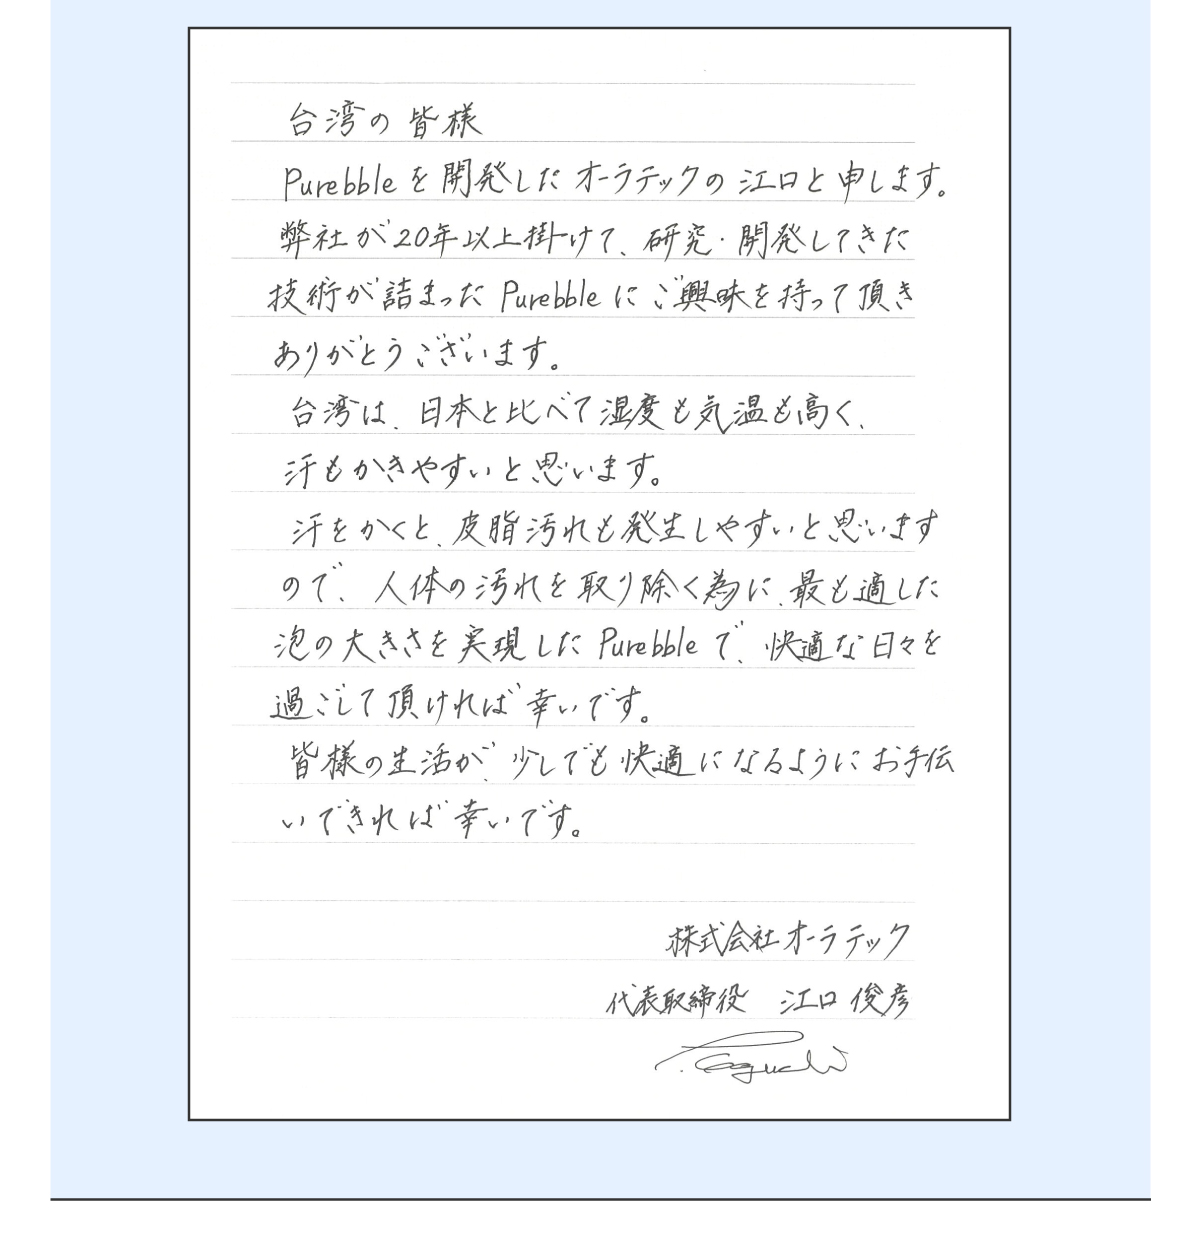 台湾の皆様
Purebbleを開発したオーラテックの江口と申します。
弊社が20年以上掛けて、研究・開発してきた
技術が詰まったPurebbleにご興味を持って頂き
ありがとうございます。
台湾は、日本と比べて湿度も気温も高く、
汗もかきやすいと思います。
汗をかくと、皮脂汚れも発生しやすいと思います
ので、人体の汚れを取り除く為に、最も適した
泡の大きさを実現したPurebbleで、快適な日々を
過ごして頂ければ幸いです。
皆様の生活が、少しでも快適になるようにお手伝
いできれば幸いです。
株式会社オーラテック
代表取締役 江口 俊彦
T. Eguchi